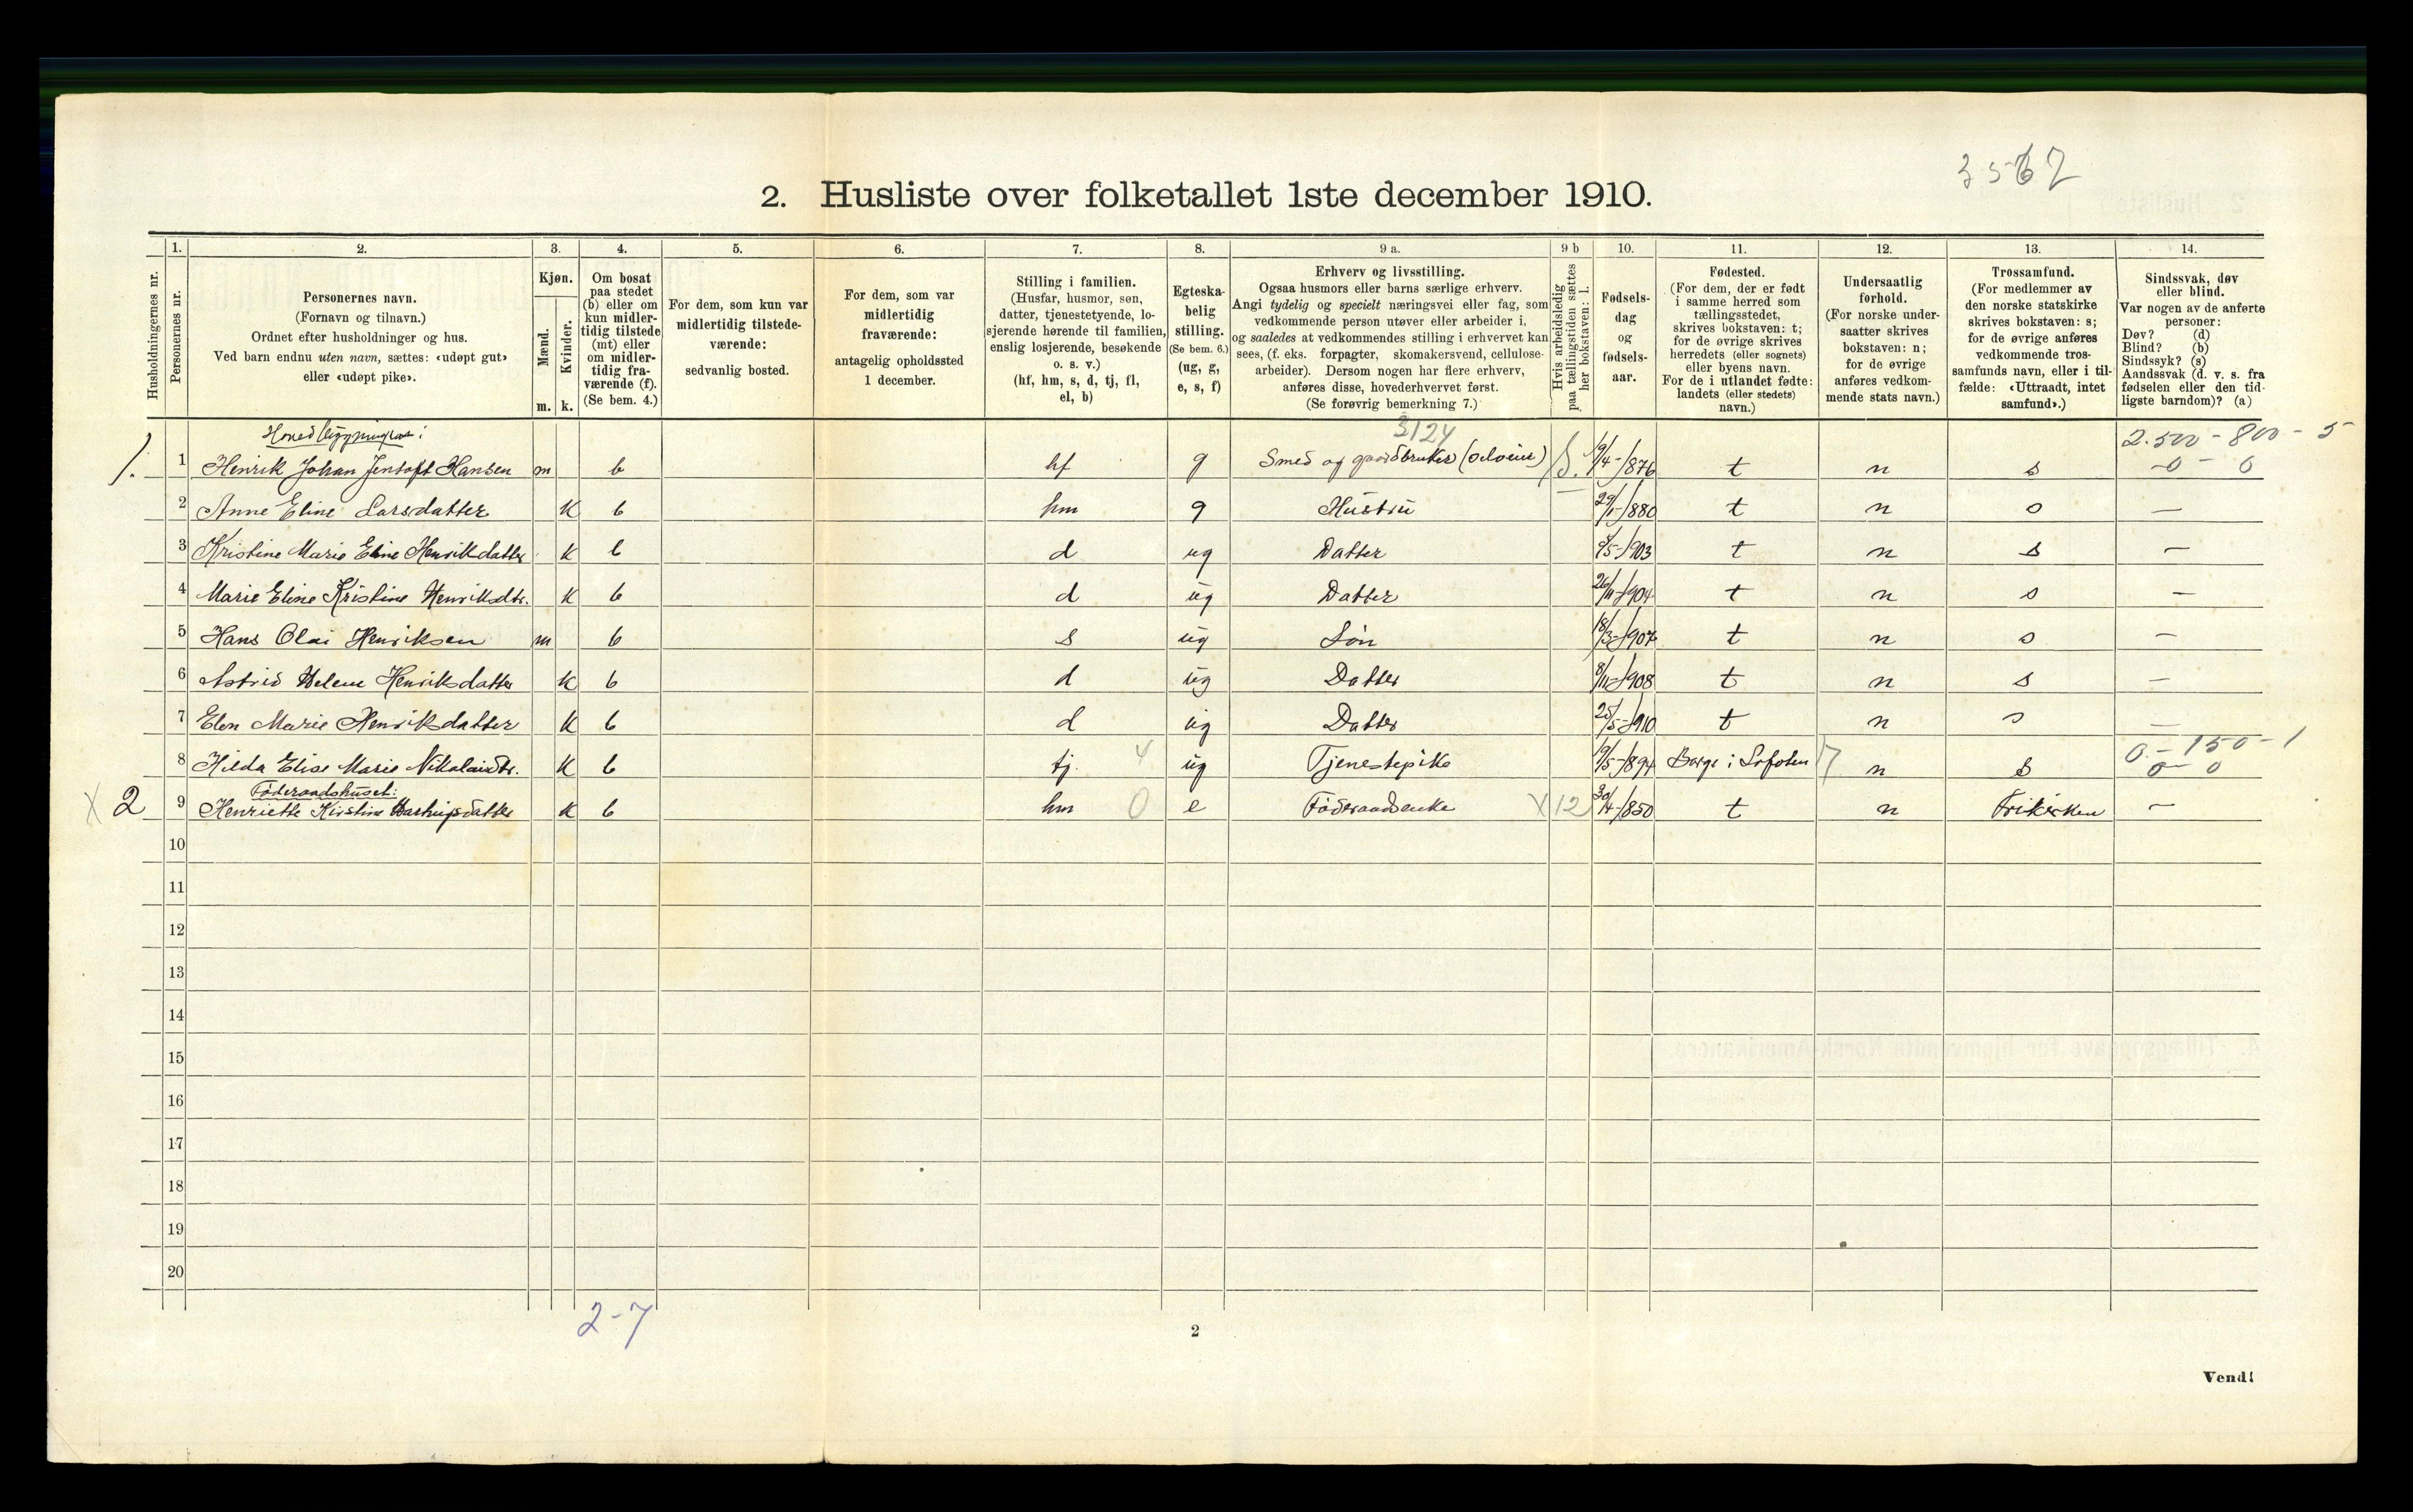 3562
2. Husliste over folketallet 1ste december 1910.
1. 2. 3. 4. 5. 6. 7. 8. 9 a. 9 b 10. 11. 12. 13. 14.
Husholdningernes nr.
Personernes nr.
Personernes navn.
(Fornavn og tilnavn.)
Ordnet efter husholdninger og hus.
Ved barn endnu uten navn, sættes: «udøpt gut»
eller «udøpt pike».
Kjøn.
Mænd.
Kvinder.
m. k.
Om bosat
paa stedet
(b) eller om
kun midler-
tidig tilstede
(mt) eller
om midler-
tidig fra-
værende (f).
(Se bem. 4.)
For dem, som kun var
midlertidig tilstede-
værende:
sedvanlig bosted.
For dem, som var
midlertidig
fraværende:
antagelig opholdssted
1 december.
Stilling i familien.
(Husfar, husmor, søn,
datter, tjenestetyende, lo-
sjerende hørende til familien,
enslig losjerende, besøkende
o. s. v.)
(hf, hm, s, d, tj, fl,
el, b)
Egteska-
belig
stilling.
(Se bem. 6.)
(ug, g,
e, s, f)
Erhverv og livsstilling.
Ogsaa husmors eller barns særlige erhverv.
Angi tydelig og specielt næringsvei eller fag, som
vedkommende person utøver eller arbeider i,
og saaledes at vedkommendes stilling i erhvervet kan
sees, (f. eks. forpagter, skomakersvend, cellulose-
arbeider). Dersom nogen har flere erhverv,
anføres disse, hovederhvervet først.
(Se forøvrig bemerkning 7.)
Hvis arbeidsledig
paa tællingstiden sættes
her bokstaven: l.
Fødsels-
dag
og
fødsels-
aar.
Fødested.
(For dem, der er født
i samme herred som
tællingsstedet,
skrives bokstaven: t;
for de øvrige skrives
herredets (eller sognets)
eller byens navn.
For de i utlandet fødte:
landets (eller stedets)
navn.)
Undersaatlig
forhold.
(For norske under-
saatter skrives
bokstaven: n;
for de øvrige
anføres vedkom-
mende stats navn.)
Trossamfund.
(For medlemmer av
den norske statskirke
skrives bokstaven: s;
for de øvrige anføres
vedkommende tros-
samfunds navn, eller i til-
fælde: «Uttraadt, intet
samfund».)
Sindssvak, døv
eller blind.
Var nogen av de anførte
personer:
Døv? (d)
Blind? (b)
Sindssyk? (s)
Aandssvak (d. v. s. fra
fødselen eller den tid-
ligste barndom)? (a)
3124 2.500 - 800 - 5
1. 1 Henrik Johan Jentoft Hansen m b hf g Smed og gaardbruker (selveier) S. 19/4-/876 t n s -0 - 0
2 Anne Eline Larsdatter K b hm g Hustru 29/1-/880 t n s —
3 Kristine Marie Eline Henrikdatter K b d ug Datter /5-/903 t n s —
4 Marie Eline Kristine Henriksdtr. K b d ug Datter 26/11-/904 t n s —
5 Hans Olai Henriksen m b s ug Søn 18/3-/907 t n s —
6 Astrid Helene Henriksdatter K b d ug Datter 8/11-/908 t n s —
7 Elen Marie Henriksdatter K b d ug Datter 25/5-/910 t n s —
0 - 150 - 1
8 Hilda Elise Marie Nikolaidtr. K b tj. 4 ug Tjenestepike 19/5-/894 Borge i Lofoten 17 n s 0 - 0
Föderaadshuset:
X 2 9 Henriette Kirstine Hastrupsdatter K b hm 0 e Föderaadsenke X 12 30/4-/850 t n Frikirken —
10
11
12
13
14
15
16
17
18
19
20
2-7
2
Vend!